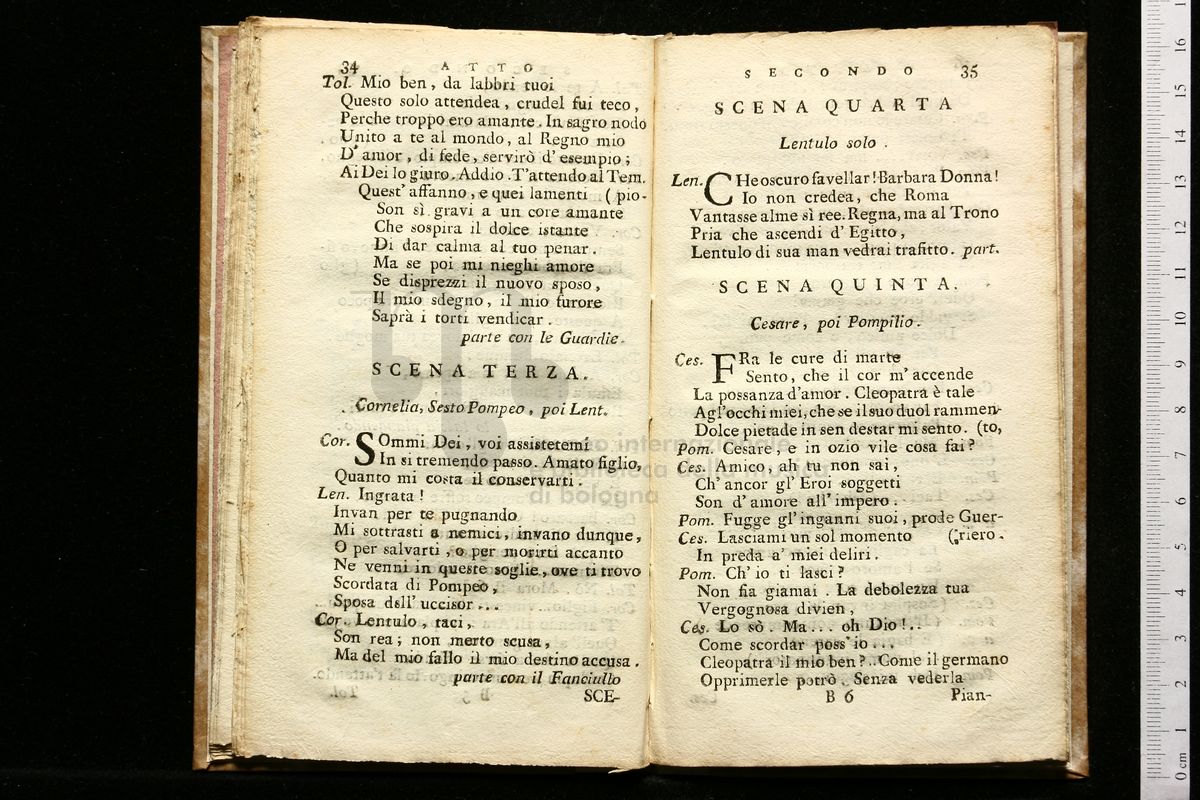 34 ATTO
Tol. Mio ben, da labbri tuoi
Questo solo attendea, crudel fui teco,
Perche troppo ero amante. In sagro nodo
Unito a te al mondo, al Regno mio
D'amor, di fede, servirò d'esempio;
Ai Dei lo giuro. Addio. T'attendo al Tem.
Quest' affanno, e quei lamenti (pio.
Son sì gravi a un core amante
Che sospira il dolce istante
Di dar calma al tuo penar.
Ma se poi mi nieghi amore
Se disprezzi il nuovo sposo,
Il mio sdegno, il mio furore
Saprà i torti vendicar.
parte con le Guardie.
SCENA TERZA.
Cornelia, Sesto Pompeo, poi Lent.
Cor. SOmmi Dei, voi assistetemi
In si tremendo passo. Amato figlio,
Quanto mi costa il conservarti.
Len. Ingrata!
Invan per te pugnando
Mi sottrasti a nemici, invano dunque,
O per salvarti, o per morirti accanto
Ne venni in queste soglie, ove ti trovo
Scordata di Pompeo,
Sposa dell' uccisor...
Cor. Lentulo, taci,
Son rea; non merto scusa,
Ma del mio fallo il mio destino accusa.
parte con il Fanciullo
SCE-
SECONDO 35
SCENA QUARTA
Lentulo solo.
Len. CHe oscuro favellar! Barbara Donna!
Io non credea, che Roma
Vantasse alme sì ree. Regna, ma al Trono
Pria che ascendi d'Egitto,
Lentulo di sua man vedrai trafitto. part.
SCENA QUINTA.
Cesare, poi Pompilio.
Ces. FRa le cure di marte
Sento, che il cor m'accende
La possanza d'amor. Cleopatra è tale
Agl'occhi miei, che se il suo duol rammen-
Dolce pietade in sen destar mi sento. (to,
Pom. Cesare, e in ozio vile cosa fai?
Ces. Amico, ah tu non sai,
Ch' ancor gl' Eroi soggetti
Son d'amore all' impero.
Pom. Fugge gl'inganni suoi, prode Guer-
Ces. Lasciami un sol momento (riero.
In preda a' miei deliri.
Pom. Ch' io ti lasci?
Non fia giamai. La debolezza tua
Vergognosa divien,
Ces. Lo sò. Ma... oh Dio!..
Come scordar poss' io...
Cleopatra il mio ben?.. Come il germano
Opprimerle potrò. Senza vederla
B 6 Pian-
museo internazionale
e biblioteca della musica
di bologna
0 cm 1 2 3 4 5 6 7 8 9 10 11 12 13 14 15 16